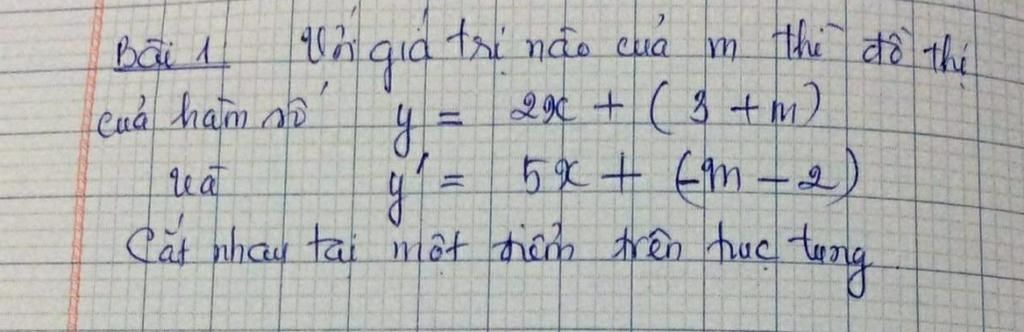 Bài 1 Với giá trị nào của m thì đồ thị
của hàm số y = 2x + (3 + m)
và y' = 5x + (-m - 2)
Cắt nhau tại một điểm trên trục tung